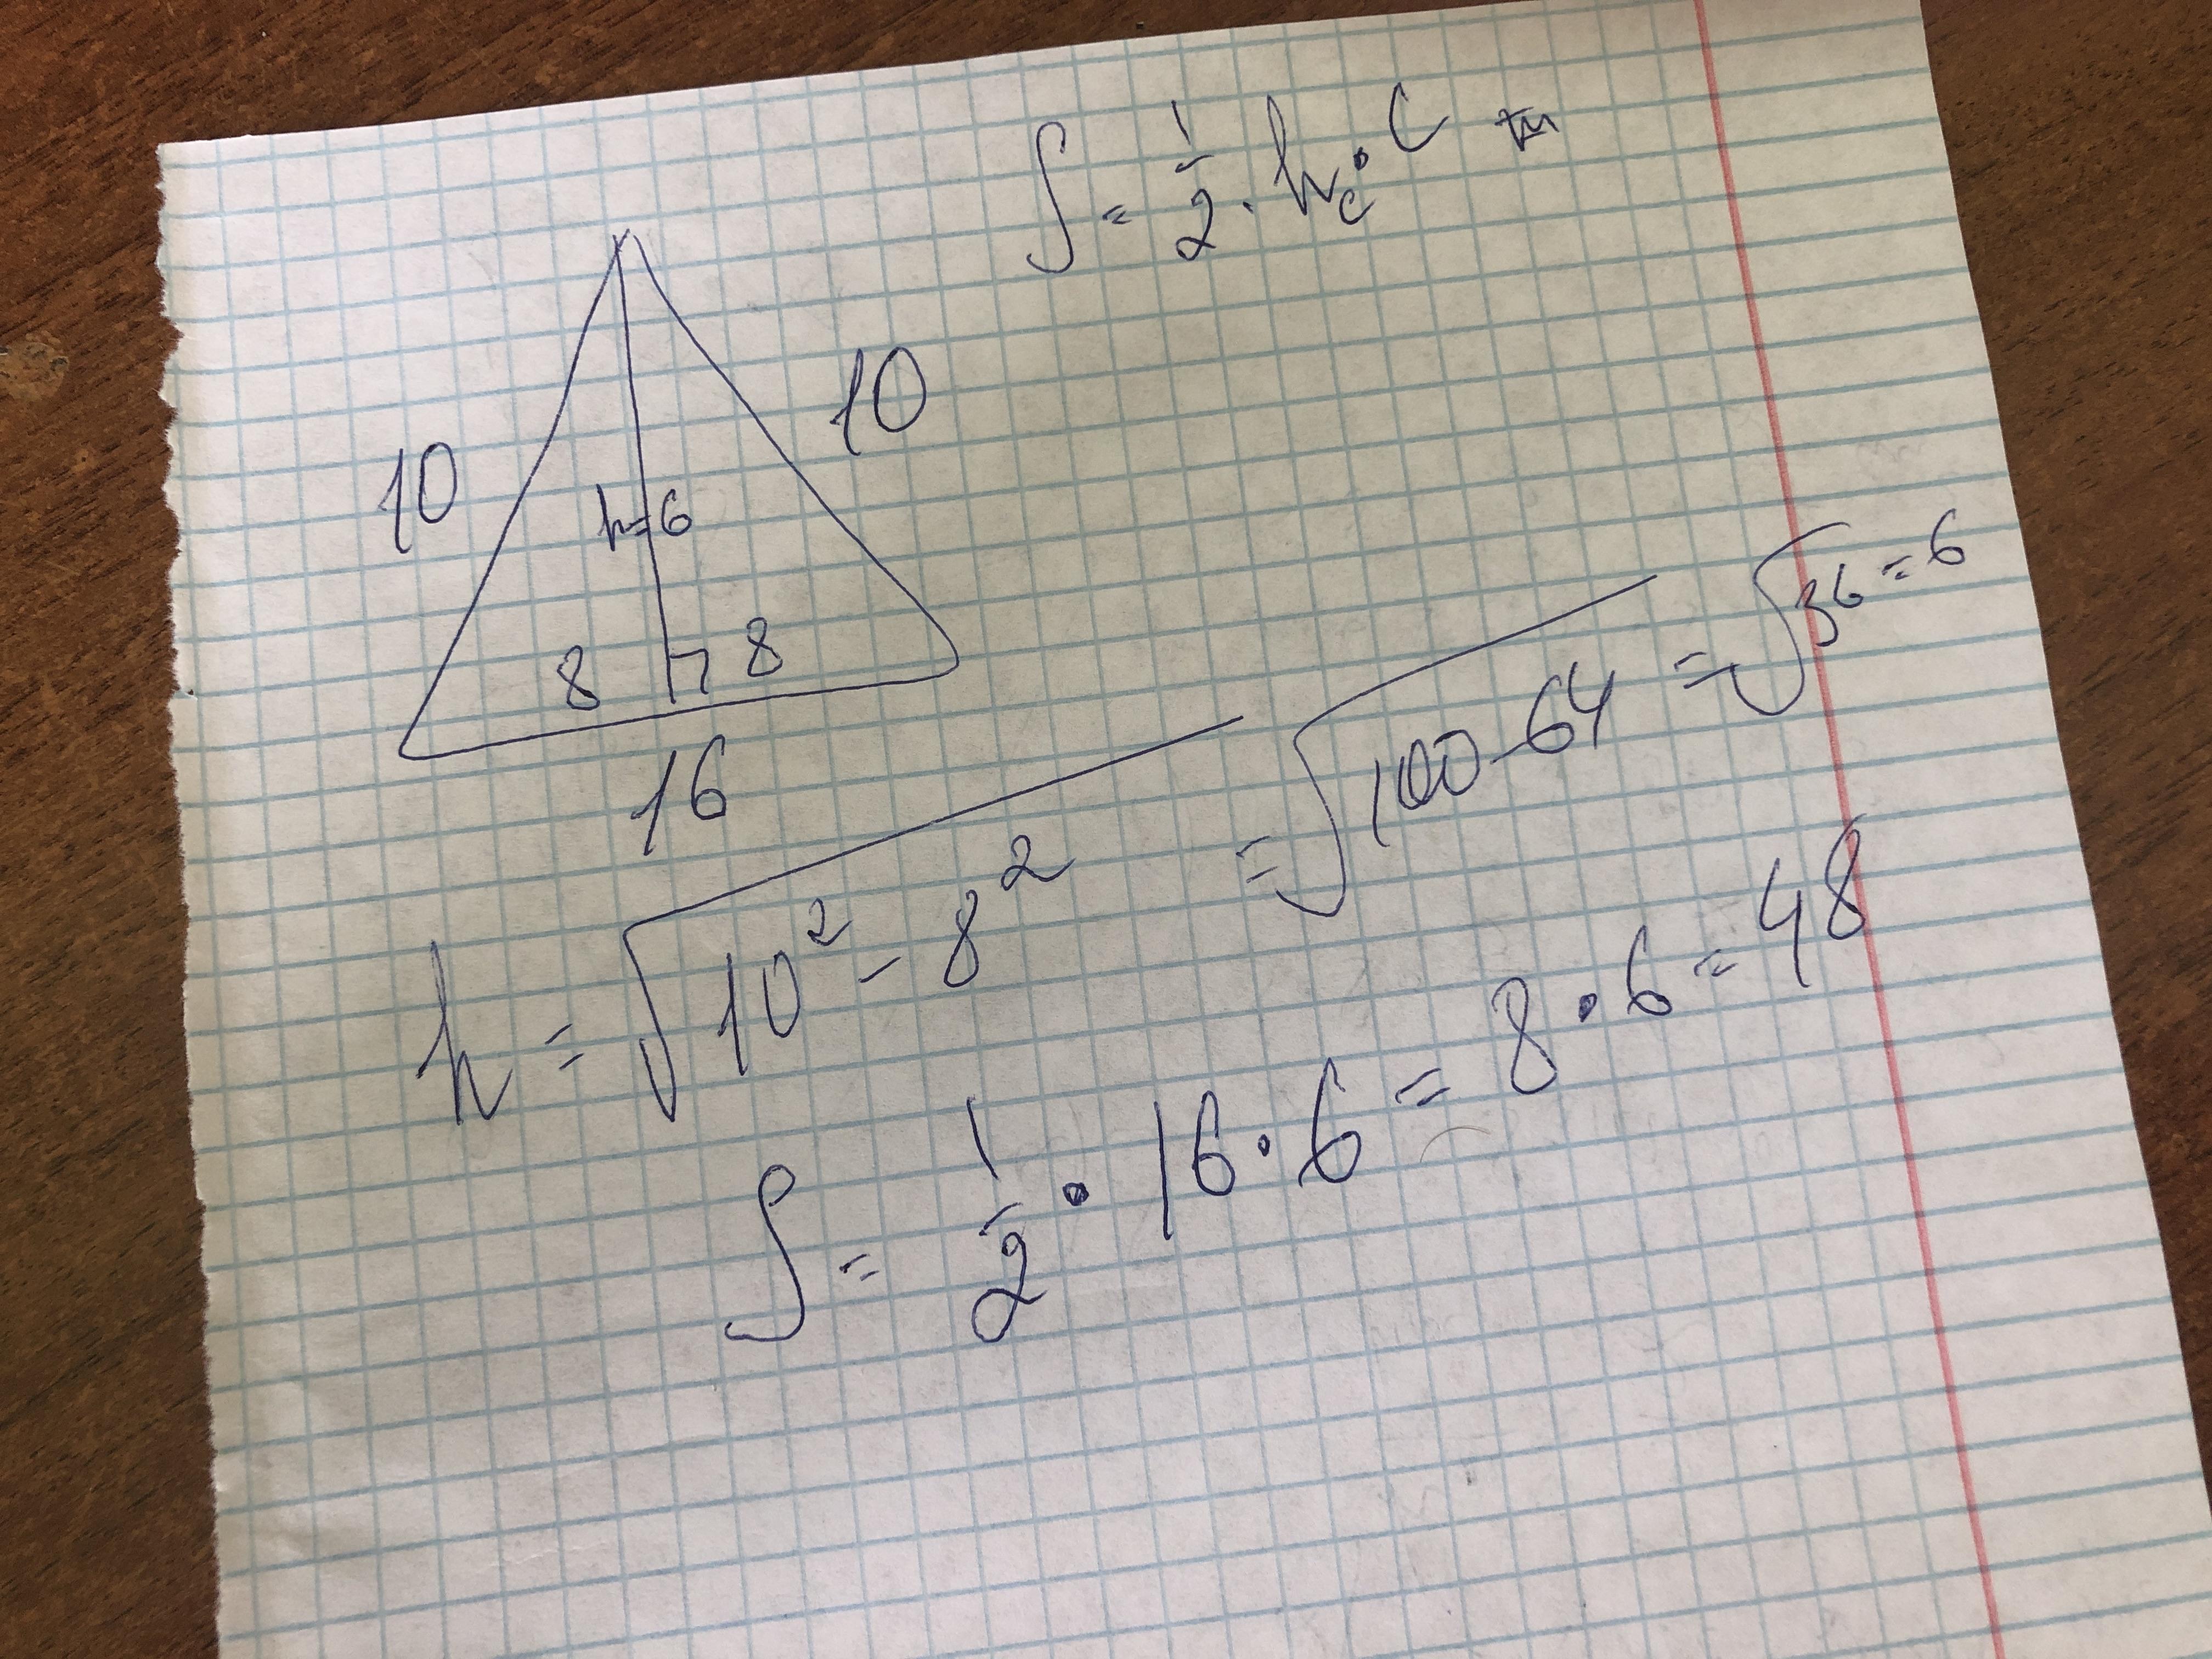 S = 1/2 · h_c · c
10
10
h=6
8
8
16
h = √10² - 8² = √100-64 = √36 = 6
S = 1/2 · 16 · 6 = 8 · 6 = 48